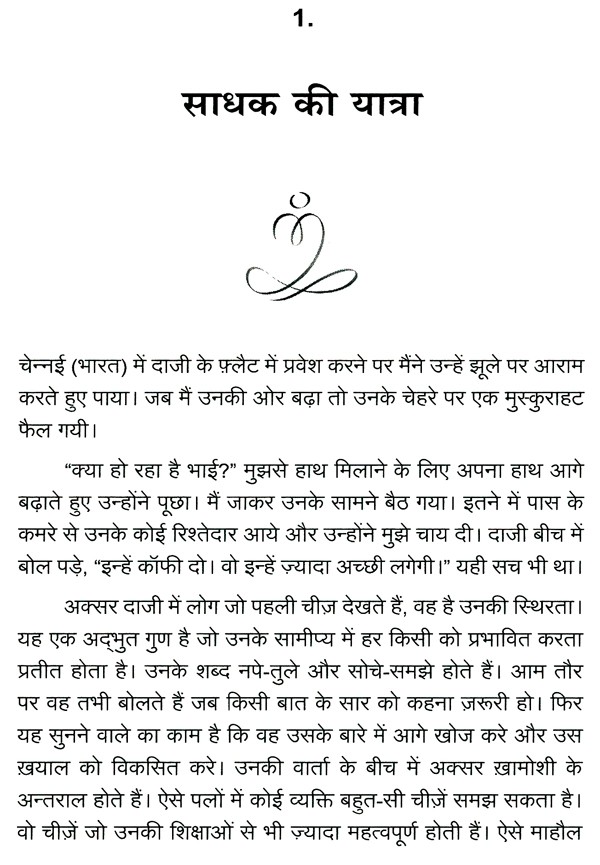 1.
साधक की यात्रा
चेन्नई (भारत) में दाजी के फ़्लैट में प्रवेश करने पर मैंने उन्हें झूले पर आराम
करते हुए पाया। जब मैं उनकी ओर बढ़ा तो उनके चेहरे पर एक मुस्कुराहट
फैल गयी।
“क्या हो रहा है भाई?” मुझसे हाथ मिलाने के लिए अपना हाथ आगे
बढ़ाते हुए उन्होंने पूछा। मैं जाकर उनके सामने बैठ गया। इतने में पास के
कमरे से उनके कोई रिश्तेदार आये और उन्होंने मुझे चाय दी। दाजी बीच में
बोल पड़े, “इन्हें कॉफी दो। वो इन्हें ज़्यादा अच्छी लगेगी।” यही सच भी था।
अक्सर दाजी में लोग जो पहली चीज़ देखते हैं, वह है उनकी स्थिरता।
यह एक अद्‌भुत गुण है जो उनके सामीप्य में हर किसी को प्रभावित करता
प्रतीत होता है। उनके शब्द नपे-तुले और सोचे-समझे होते हैं। आम तौर
पर वह तभी बोलते हैं जब किसी बात के सार को कहना ज़रूरी हो। फिर
यह सुनने वाले का काम है कि वह उसके बारे में आगे खोज करे और उस
ख़याल को विकसित करे। उनकी वार्ता के बीच में अक्सर ख़ामोशी के
अन्तराल होते हैं। ऐसे पलों में कोई व्यक्ति बहुत-सी चीज़ें समझ सकता है।
वो चीज़ें जो उनकी शिक्षाओं से भी ज़्यादा महत्वपूर्ण होती हैं। ऐसे माहौल